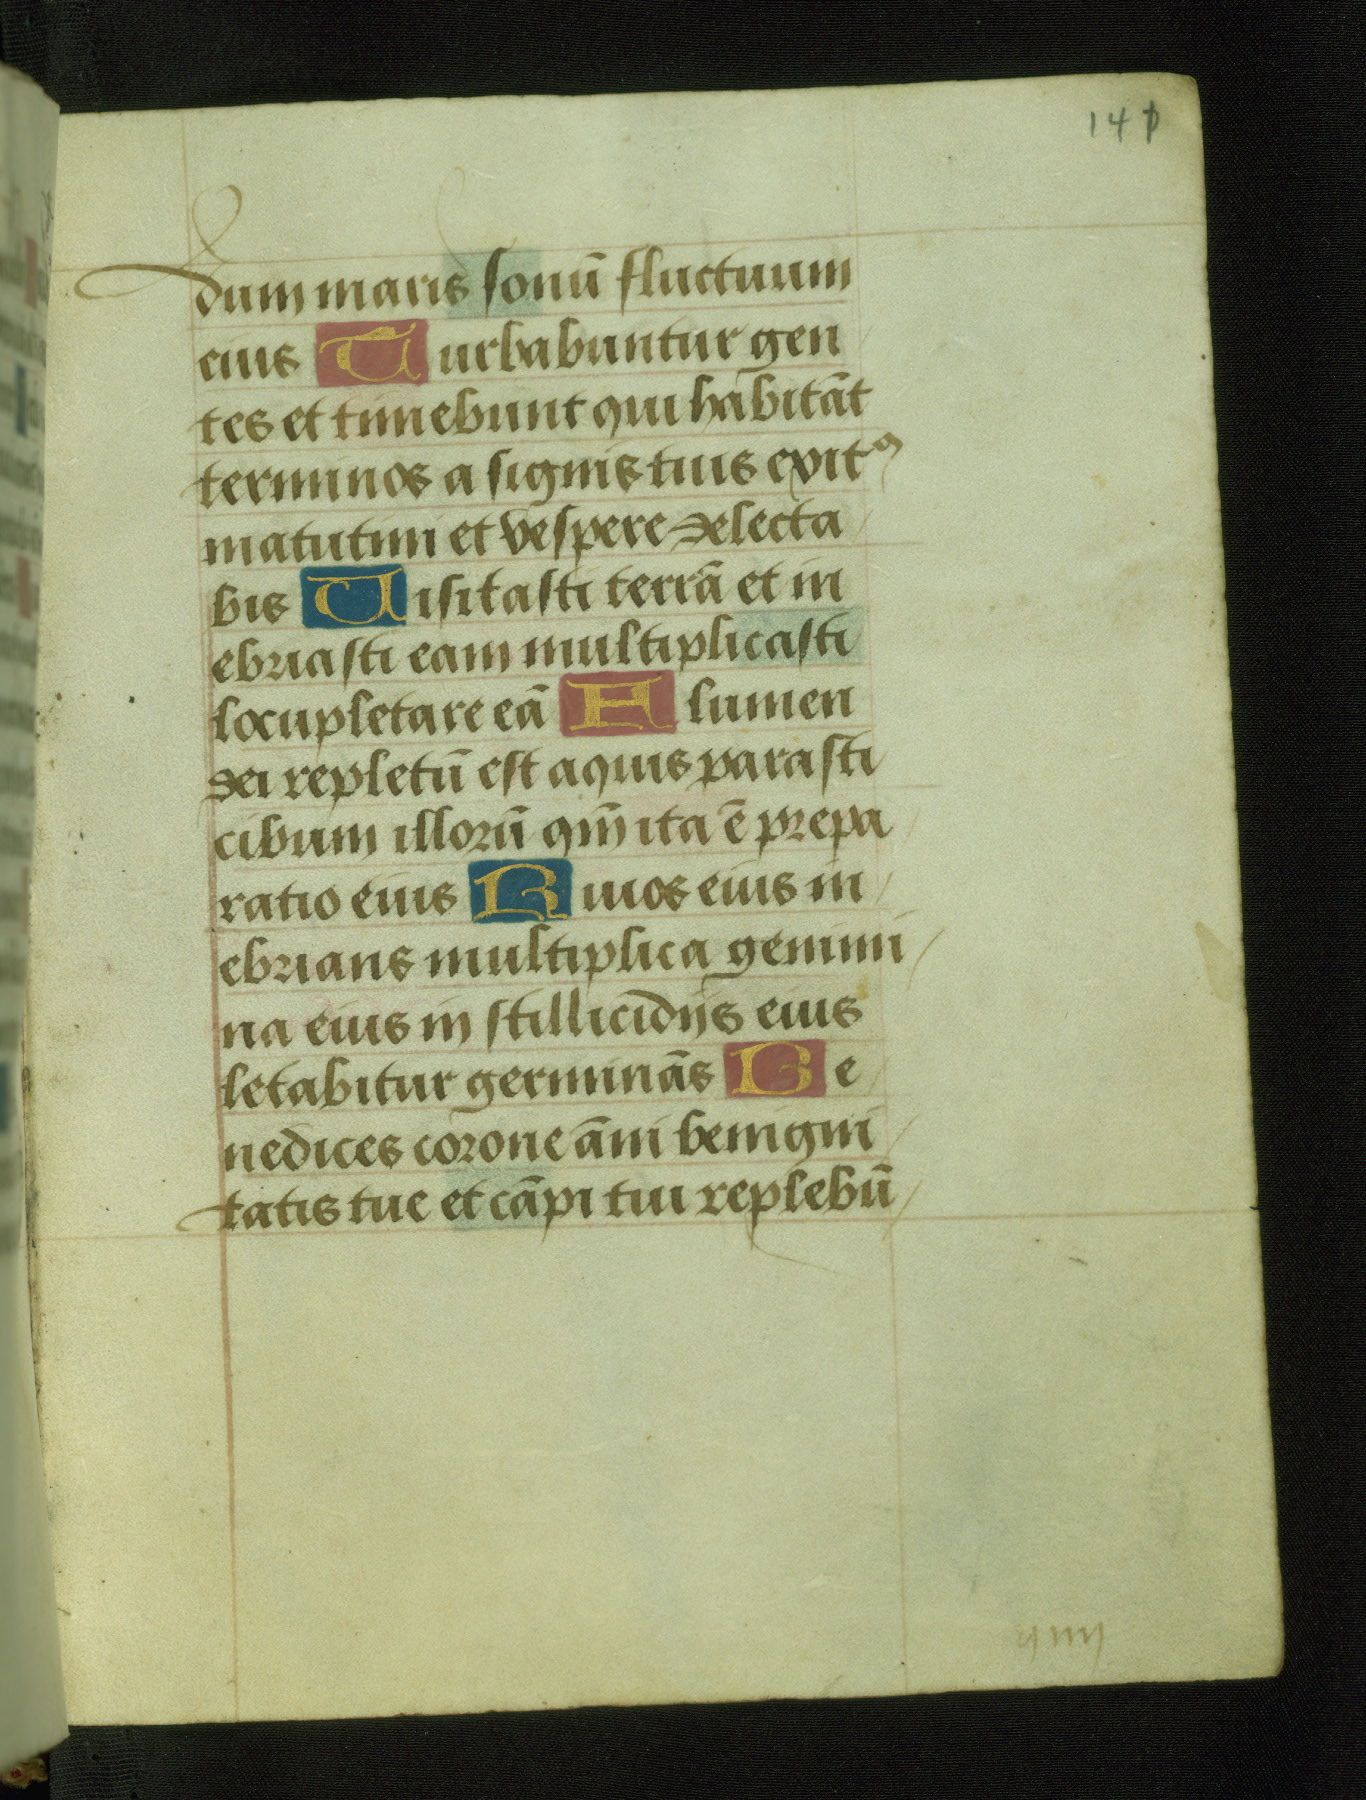 141
dum maris sonū fluctuum
eius Turbabuntur gen
tes et timebunt qui habitāt
terminos a signis tuis exitꝰ
matutini et vespere delecta
bis Uisitasti terrā et in
ebriasti eam multiplicasti
locupletare eā Flumen
dei repletū est aquis parasti
cibum illorū qm̄ ita ē prepa
ratio eius Riuos eius in
ebrians multiplica genimi
na eius in stillicidijs eius
letabitur germinās Be
nedices corone āni benigni
tatis tue et cāpi tui replebū